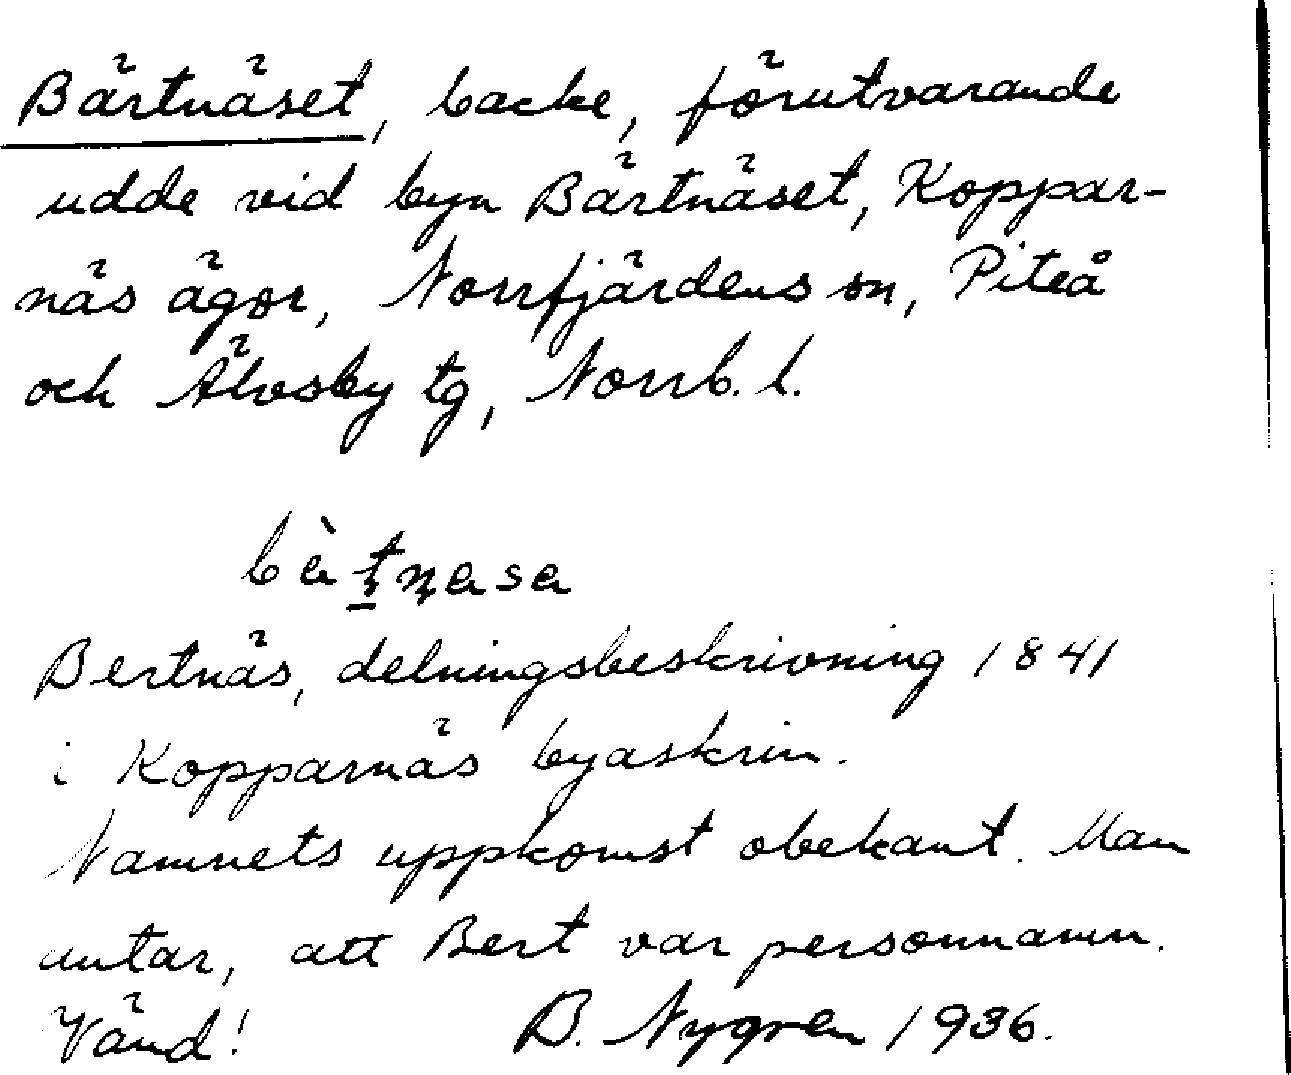 Bärtnäset, backe, förutvarande
udde vid byn Bärtnäset, Koppar-
näs ägor, Norrfjärdens sn, Piteå
och Älvsby tg, Norrb. l.
Bertnäs, delningsbeskrivning 1841
i Kopparnäs byaskrin.
Namnets uppkomst obekant. Man
antar, att Bert var personnamn.
Vänd! B. Nygren 1936.